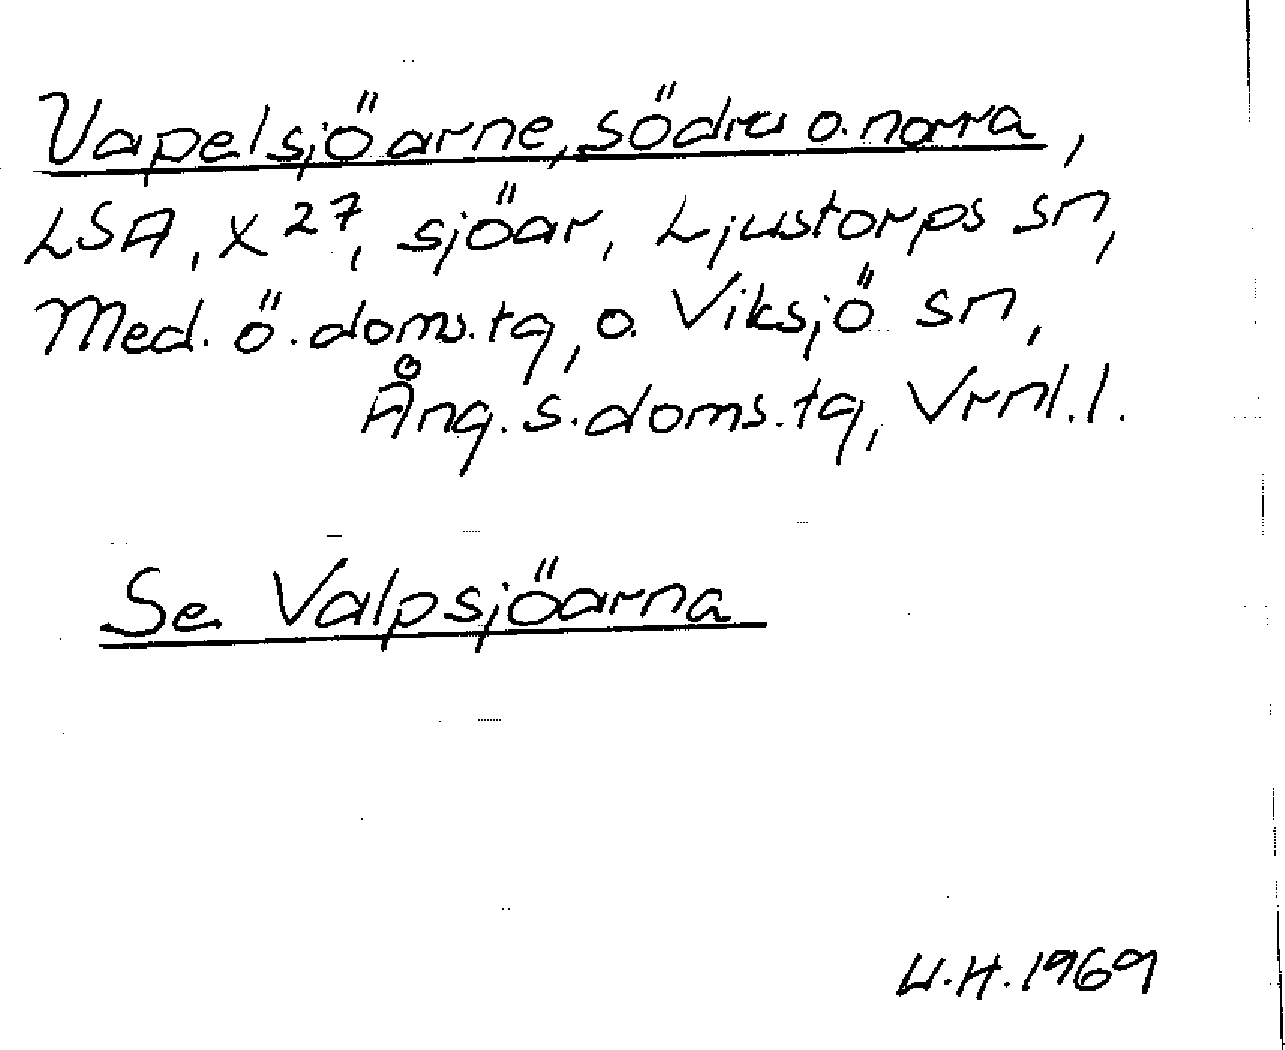 Vapelsjöarne, södra o. norra,
LSA, X 27, sjöar, Ljustorps sn,
Med. ö. doms. tg, o. Viksjö sn,
Ång. s. doms. tg, Vrnl. l.
Se Valpsjöarna
U.H. 1969